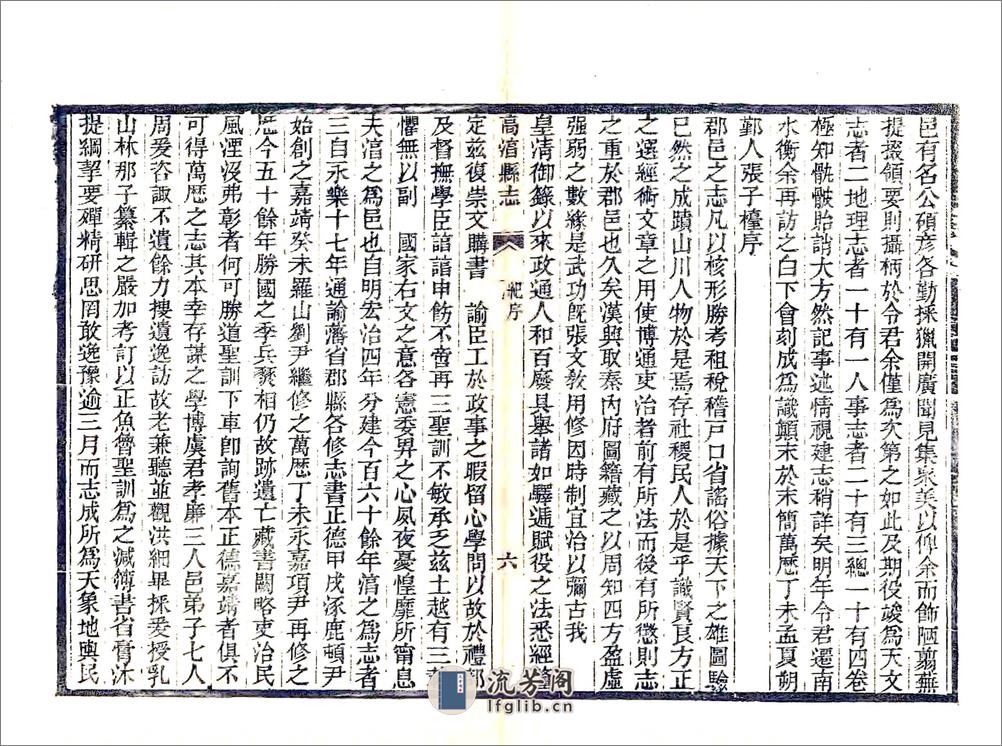 邑有名公碩彥各勤採獵開廣聞見集眾美以仰余而飾陋翦蕪
提掇領要則攝柄於令君余僅為次第之如此及期役竣為天文
志者二地理志者一十有一人事志者二十有三總一十有四卷
極知骫骳貽誚大方然記事述情視建志稍詳矣明年令君遷南
水衡余再訪之白下會刻成為識顛末於末簡萬曆丁未孟夏朔
鄞人張子橒序
郡邑之志凡以核形勝考租稅稽戶口省謠俗據天下之雄圖驗
已然之成蹟山川人物於是焉存社稷民人於是乎識賢良方正
之選經術文章之用使博通吏治者前有所法而後有所懲則志
之重於郡邑也久矣漢興取秦內府圖籍藏之以周知四方盈虛
强弱之數繇是武功旣張文敎用修因時制宜治以彌古我
皇清御籙以來政通人和百廢具舉諸如驛遞賦役之法悉經
高淳縣志 紀序 六
定茲復崇文購書 諭臣工於政事之暇留心學問以故於禮部
及督撫學臣諳諳申飭不啻再三聖訓不敏承乏茲土越有三
懼無以副 國家右文之意各憲委畀之心夙夜憂惶靡所甯息
夫湻之為邑也自明去治四年分建今百六十餘年湻之為志者
三自永樂十七年通諭藩省郡縣各修志書正德甲戌涿鹿頓尹
始創之嘉靖癸未羅山劉尹繼修之萬曆丁未永嘉項尹再修之
歷今五十餘年勝國之季兵燹相仍故跡遺亡藏書闕略吏治民
風湮沒弗彰者何可勝道聖訓下車卽詢舊本正德嘉靖者俱不
可得萬曆之志其本幸存謀之學博虞君孝廉三人邑弟子七人
周爰咨諏不遺餘力搜遺逸訪故老兼聽並觀洪細畢採爰授乳
山林那子纂輯之嚴加考訂以正魚魯聖訓為之減簿書省膏沐
提綱挈要殫精研思罔敢逸豫逾三月而志成所為天象地輿民
流芳阁
lfglib.cn